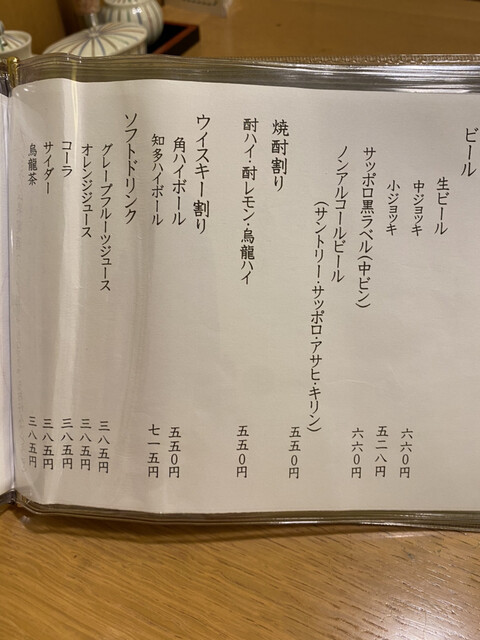 ビール
生ビール
中ジョッキ 六六〇円
小ジョッキ 五二八円
サッポロ黒ラベル(中ビン) 六六〇円
ノンアルコールビール
(サントリー・サッポロ・アサヒ・キリン) 五五〇円
焼酎割り
酎ハイ・酎レモン・烏龍ハイ 五五〇円
ウイスキー割り
角ハイボール 五五〇円
知多ハイボール 七一五円
ソフトドリンク
グレープフルーツジュース 三八五円
オレンジジュース 三八五円
コーラ 三八五円
サイダー 三八五円
烏龍茶 三八五円